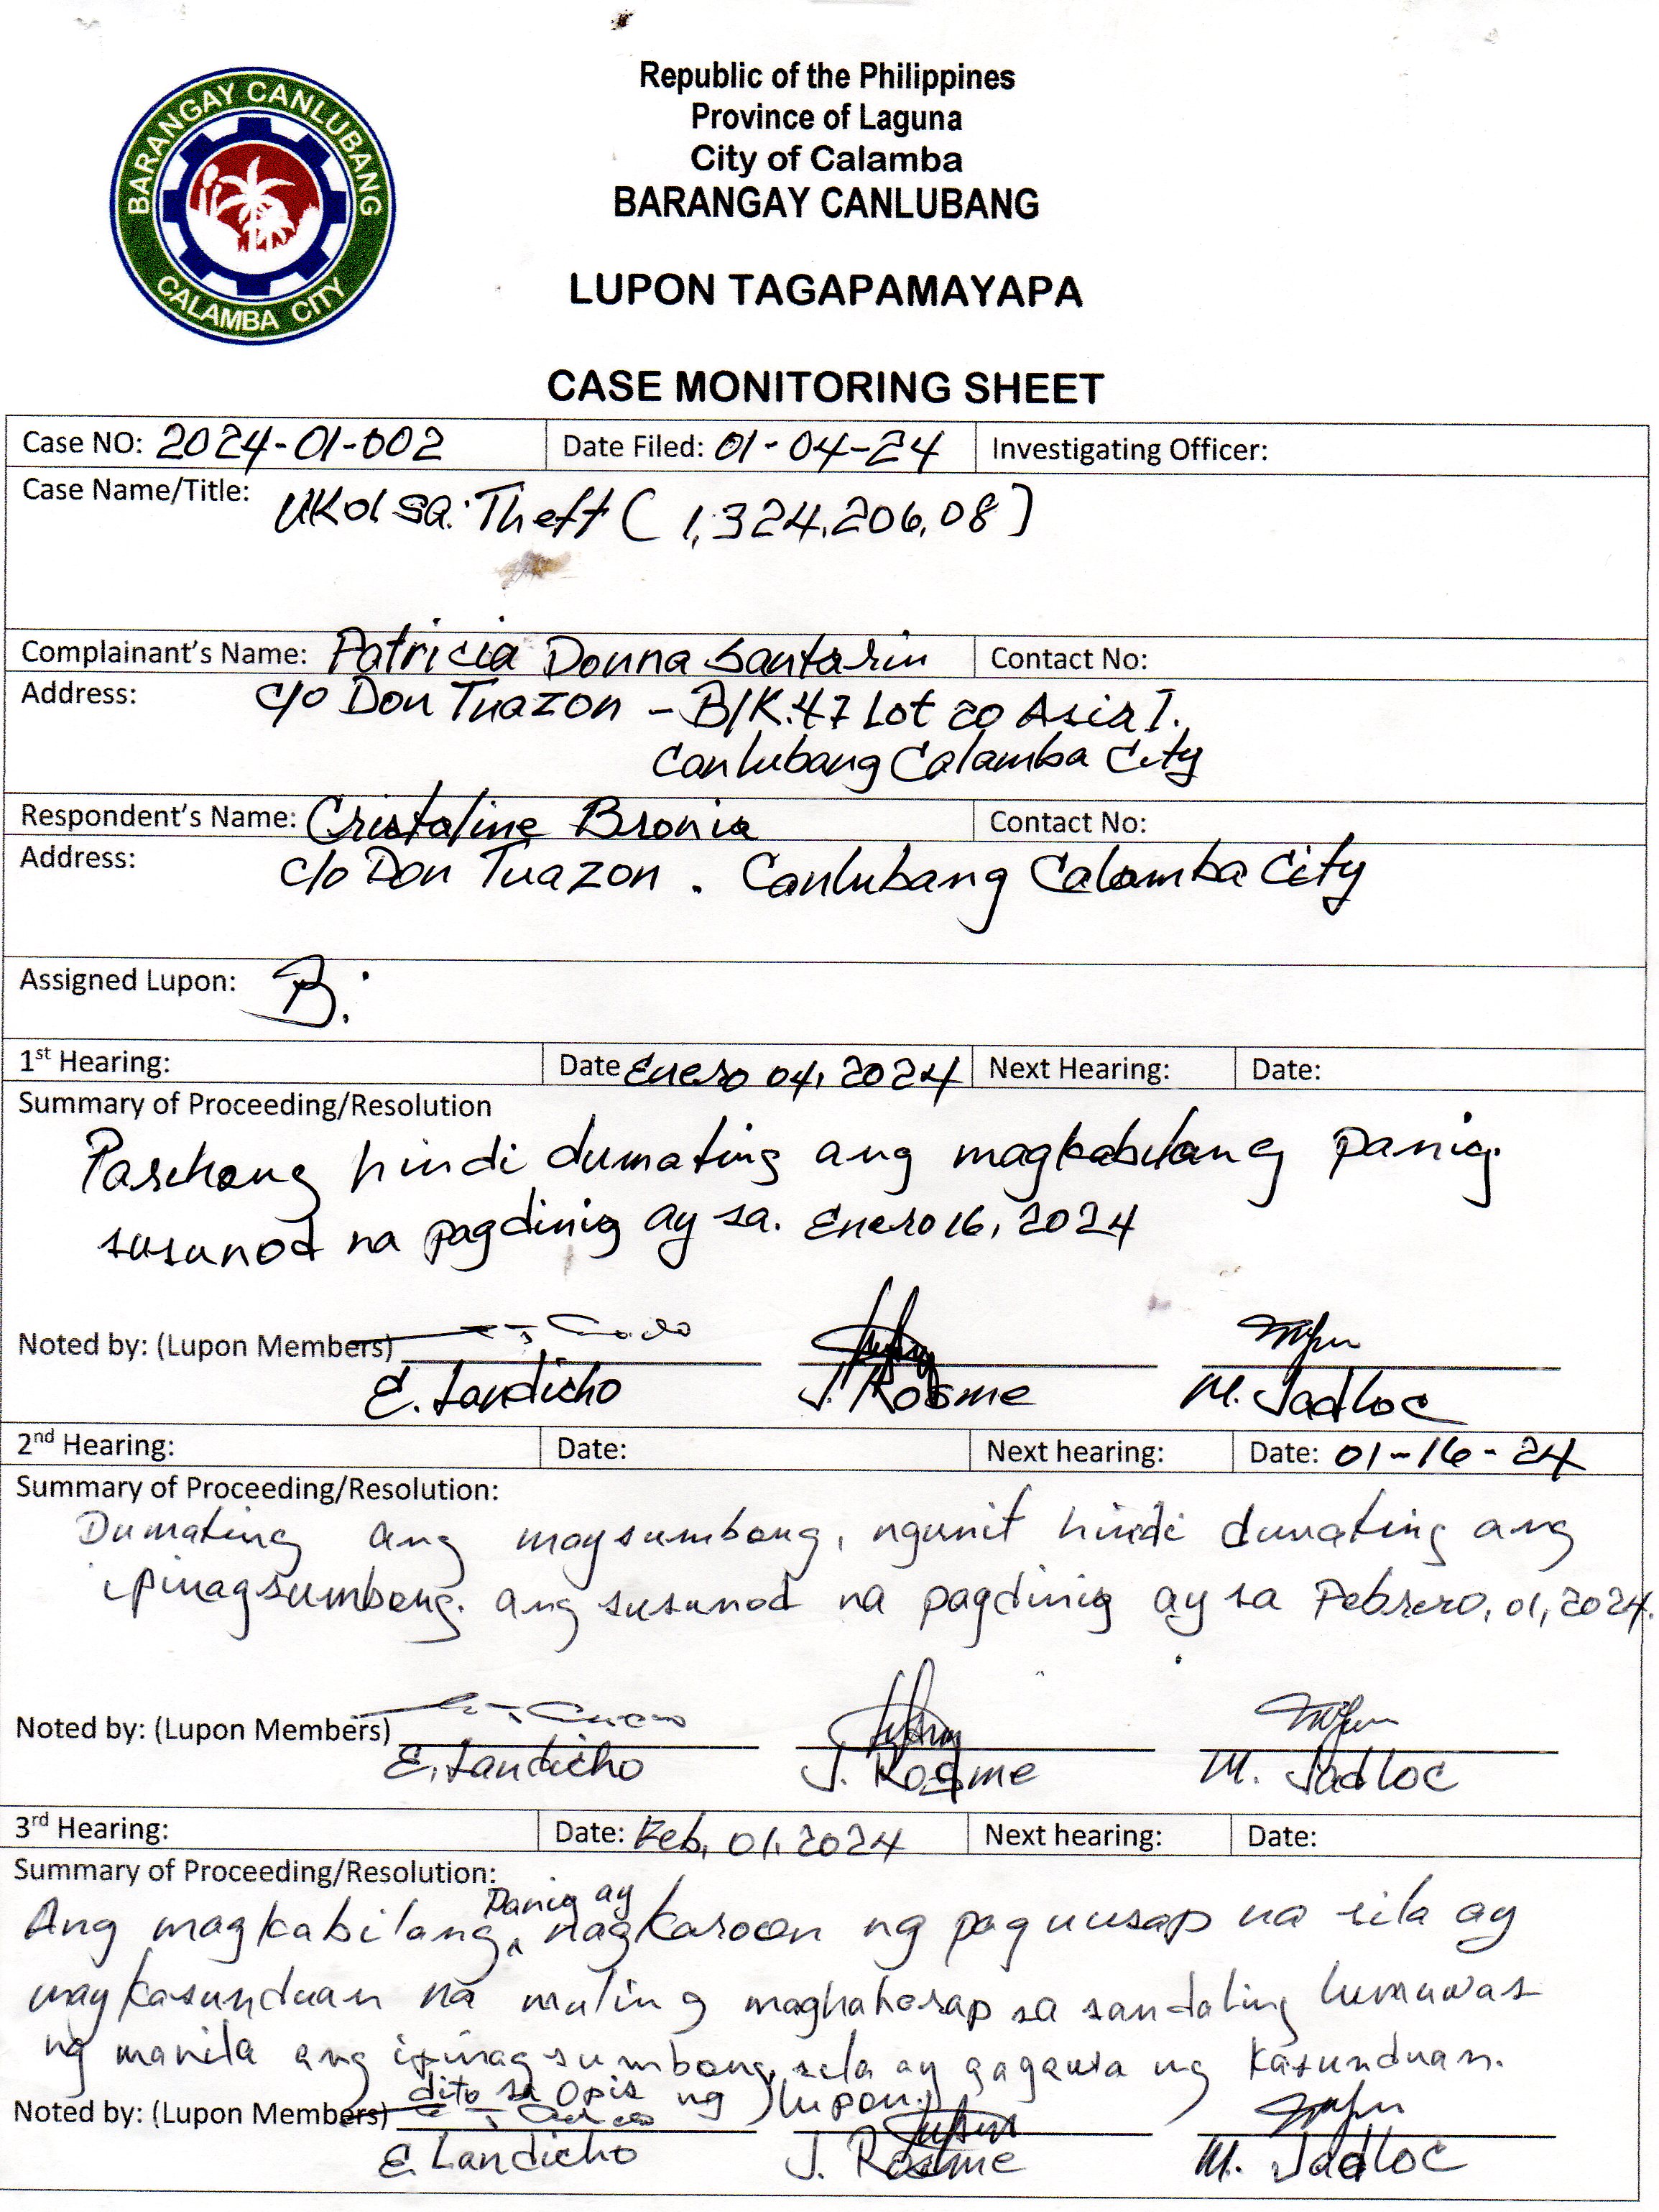 BARANGAY CANLUBANG
CALAMBA CITY
Republic of the Philippines
Province of Laguna
City of Calamba
BARANGAY CANLUBANG
LUPON TAGAPAMAYAPA
CASE MONITORING SHEET
Case NO: 2024-01-002 Date Filed: 01-04-24 Investigating Officer:
Case Name/Title: Ukol sa: Theft ( 1,324,206.08 )
Complainant's Name: Patricia Donna Santarin Contact No:
Address: c/o Don Tuazon - Blk.47 Lot 20 Asia I.
Canlubang Calamba City
Respondent's Name: Cristaline Bronia Contact No:
Address: c/o Don Tuazon. Canlubang Calamba City
Assigned Lupon: B.
1st Hearing: Date Enero 04, 2024 Next Hearing: Date:
Summary of Proceeding/Resolution
Parehong hindi dumating ang magkabilang panig.
susunod na pagdinig ay sa. Enero 16, 2024
Noted by: (Lupon Members)
E. Landicho J. Rosme M. Jadloc
2nd Hearing: Date: Next hearing: Date: 01-16-24
Summary of Proceeding/Resolution:
Dumating ang maysumbong, ngunit hindi dumating ang
ipinagsumbong. ang susunod na pagdinig ay sa Pebrero, 01, 2024.
Noted by: (Lupon Members)
E. Landicho J. Rosme M. Jadloc
3rd Hearing: Date: Feb, 01, 2024 Next hearing: Date:
Summary of Proceeding/Resolution:
Ang magkabilang Panig ay nagkaroon ng paguusap na sila ay
may kasunduan na muling maghaharap sa sandaling lumuwas
ng manila ang ipinagsumbong, sila ay gagawa ng kasunduan.
dito sa Opis ng lupon.
Noted by: (Lupon Members)
E. Landicho J. Rosme M. Jadloc